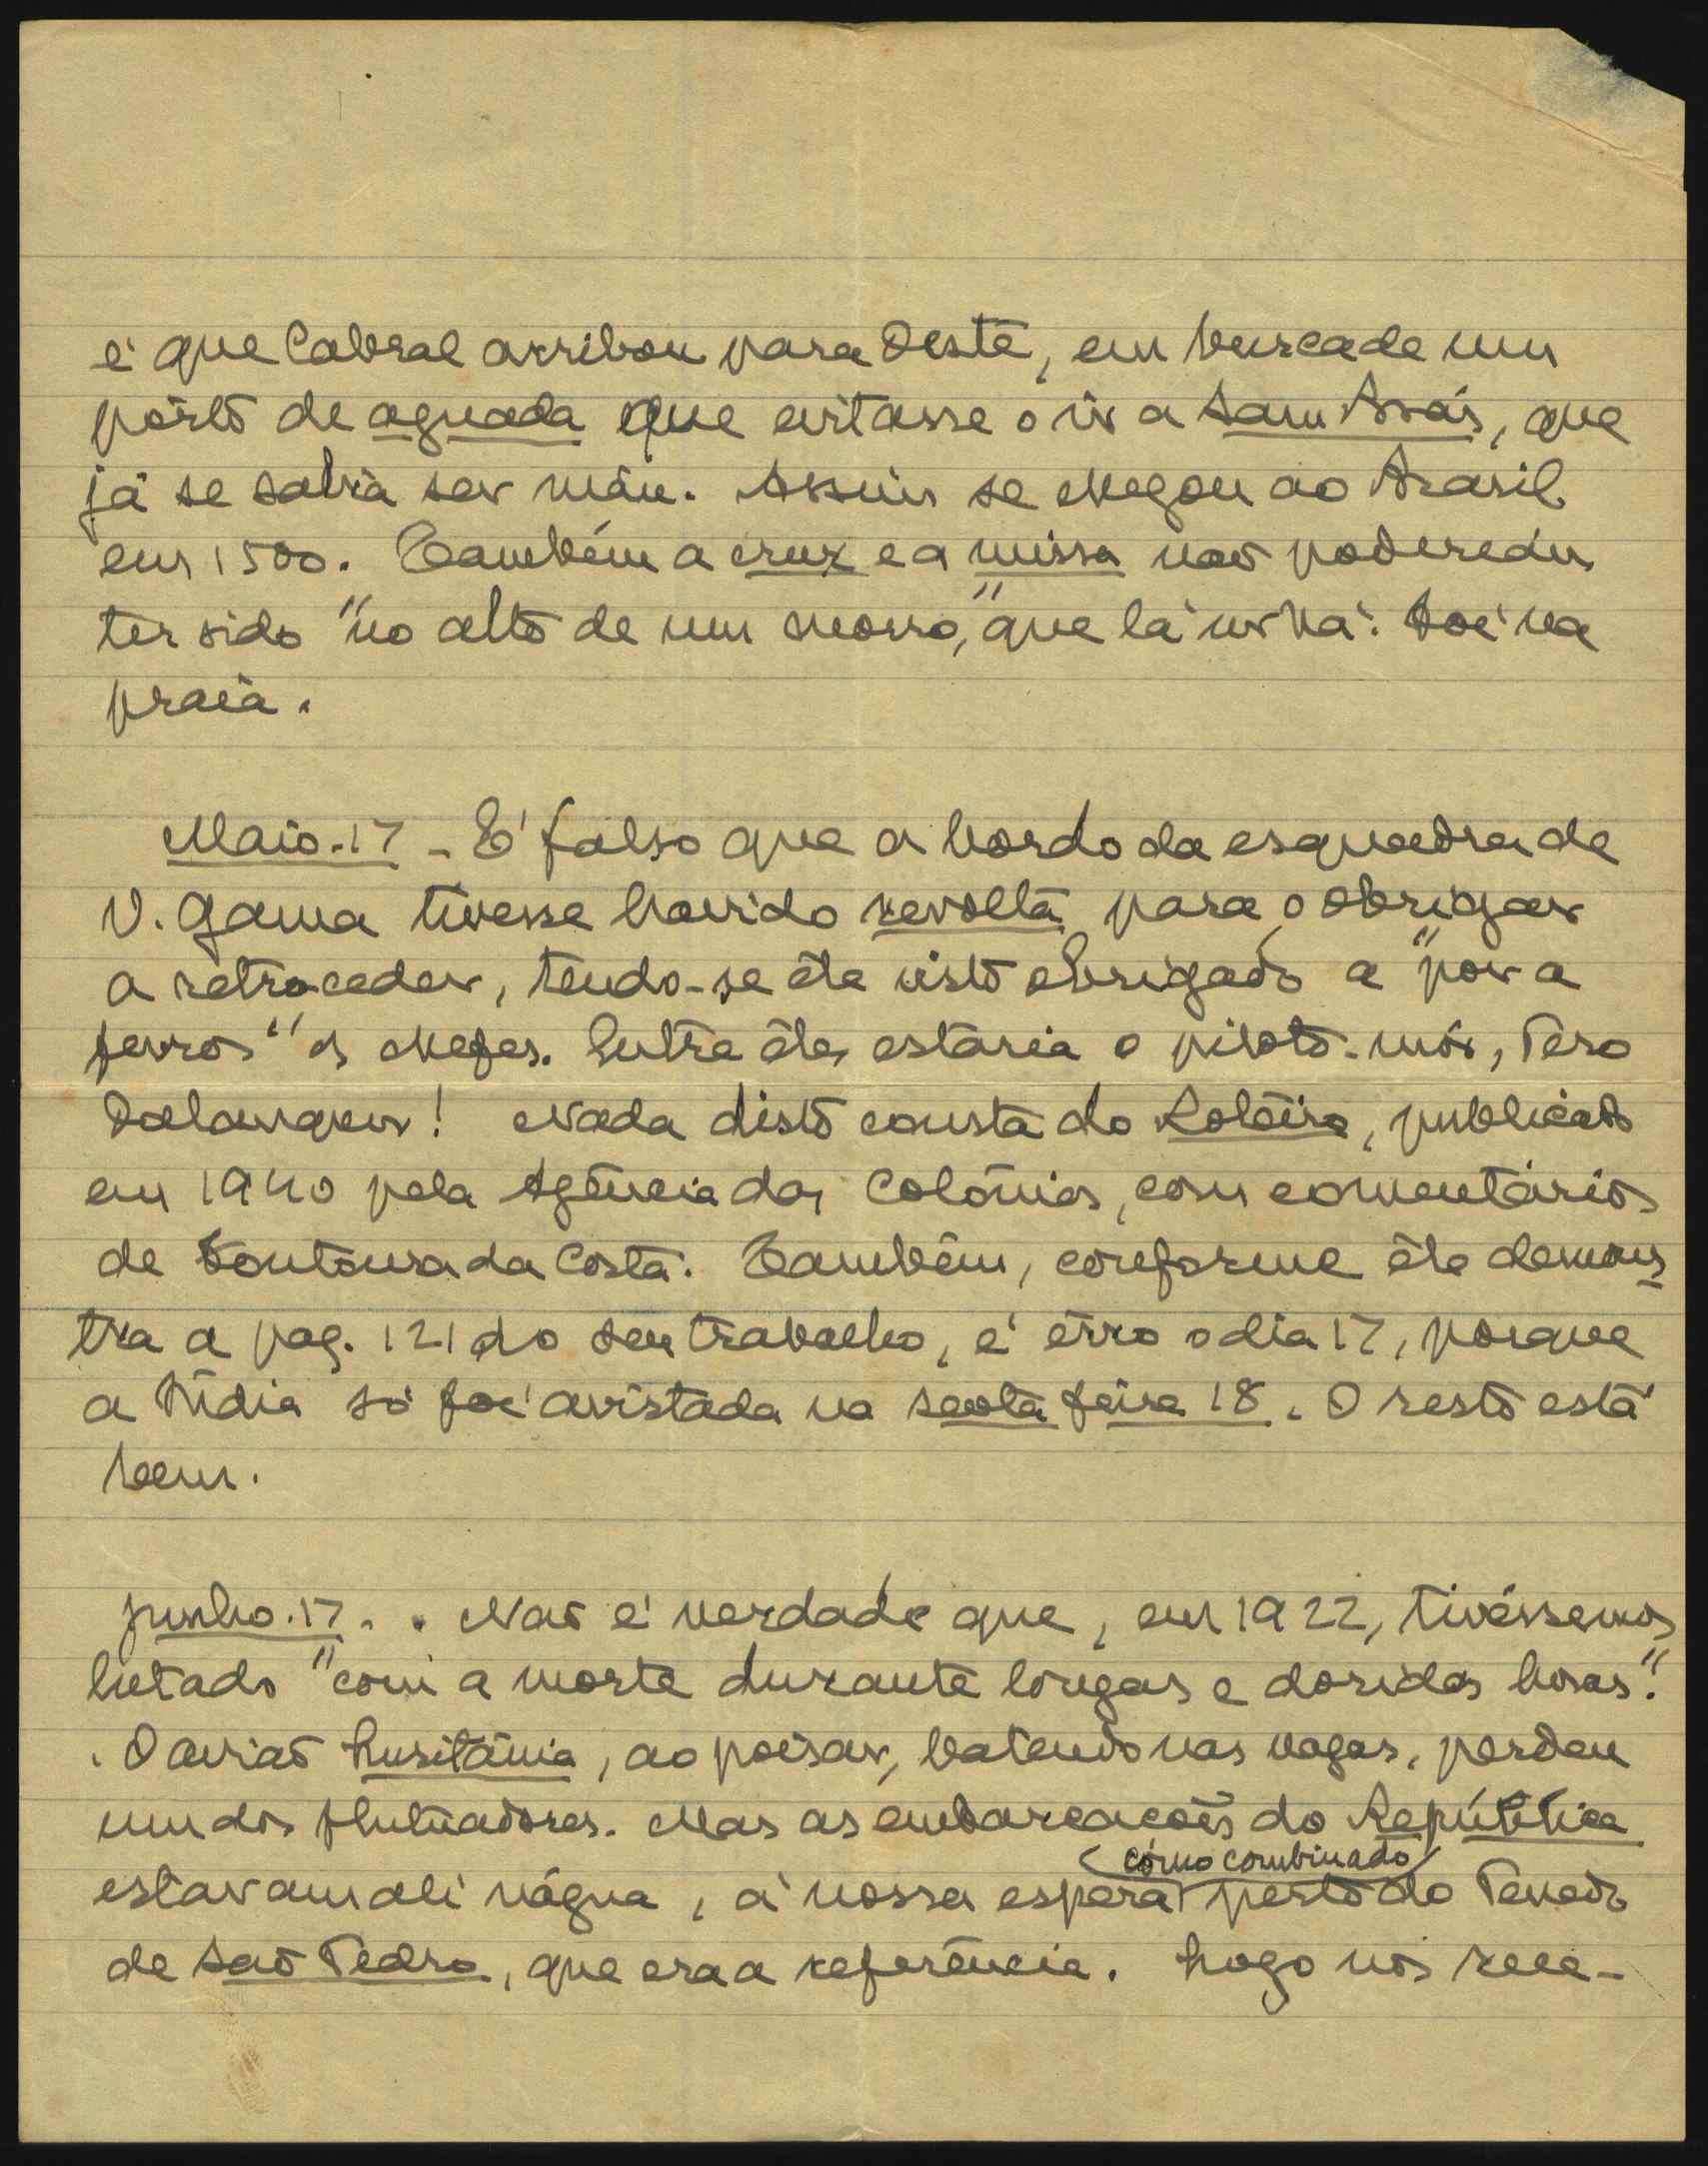 é que Cabral arribou para Oeste, em busca de um
pôrto de aguada que evitasse o ir a Sam Brás, que
já se sabia ser máu. Assim se chegou ao Brasil
em 1500. Também a cruz e a missa não poderiam
ter sido "no alto de um morro," que lá não há. Foi na
praia.
Maio. 17 - É falso que a bordo da esquadra de
V. Gama tivesse havido revolta para o obrigar
a retroceder, tendo-se êle visto obrigado a "por a
ferros" os chefes. Entre êles estaria o piloto-mór, Pero
Dalanquer! Nada disto consta do Rotêiro, publicado
em 1940 pela Agência das Colónias, com comentários
de Fontoura da Costa. Também, conforme êle demons
tra a pag. 121 do seu trabalho, é êrro o dia 17, porque
a Índia só foi avistada na sexta feira 18. O resto está
bem.
Junho. 17. . Não é verdade que, em 1922, tivéssemos
lutado "com a morte durante longas e doridas horas".
. O avião Lusitânia, ao poisar, batendo nas vagas, perdeu
um dos flutuadores. Mas as embarcações do República
como combinado
estavam ali nágua, á nossa espera perto do Penedo
de São Pedro, que era a referência. Logo nos rece-